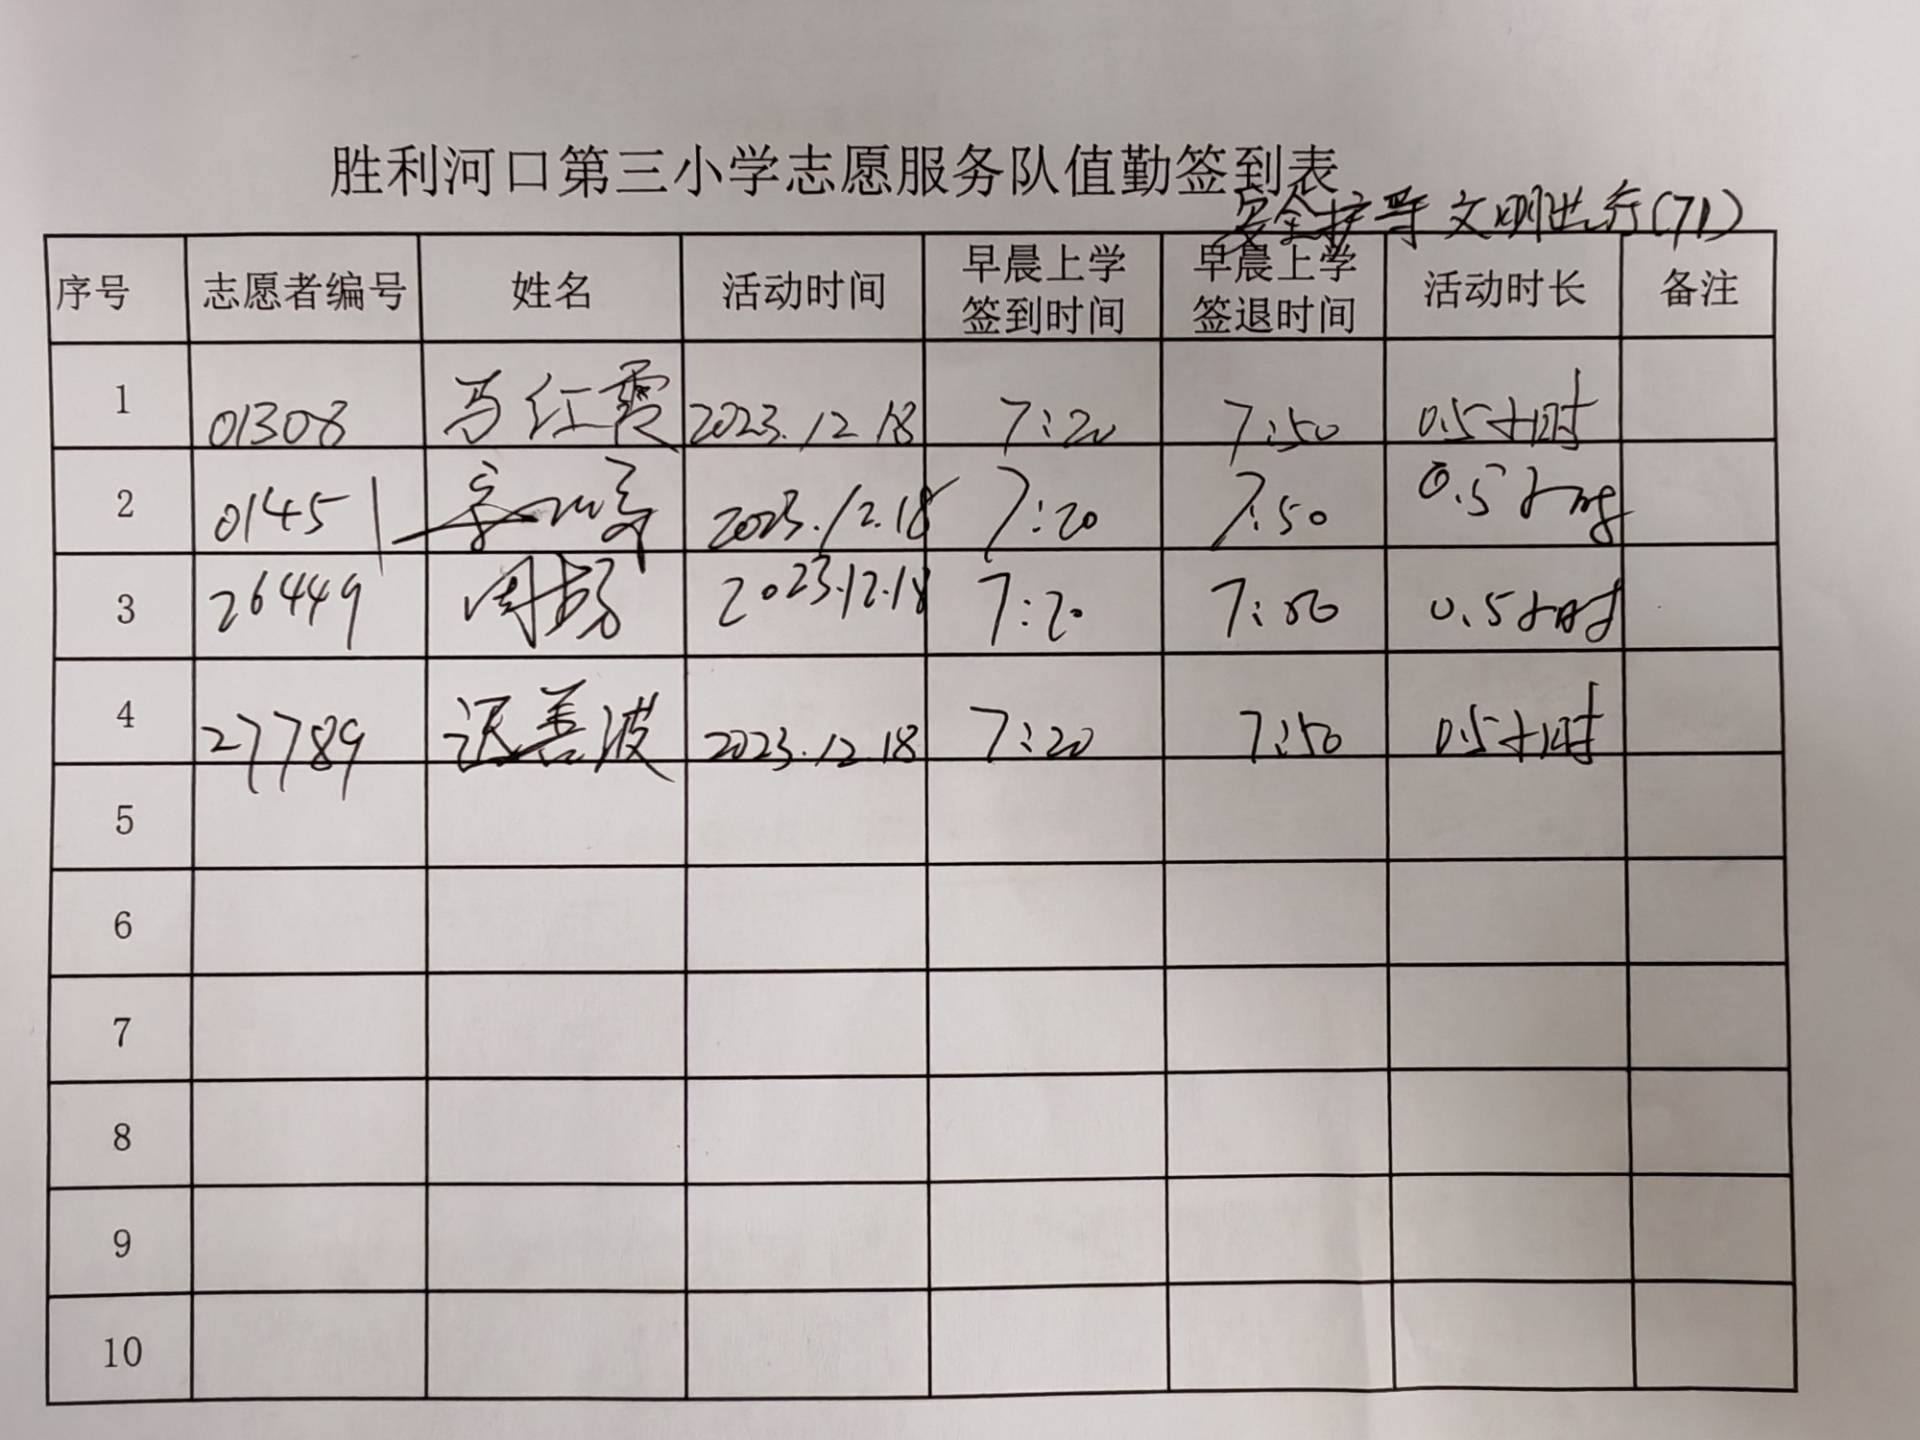 胜利河口第三小学志愿服务队值勤签到表
安全护导 文明出行(71)
序号 志愿者编号 姓名 活动时间 早晨上学签到时间 早晨上学签退时间 活动时长 备注
1 01308 马红霞 2023.12.18 7:20 7:50 0.5小时
2 01451 2023.12.18 7:20 7:50 0.5小时
3 26449 周 2023.12.18 7:20 7:50 0.5小时
4 27789 迟善波 2023.12.18 7:20 7:50 0.5小时
5
6
7
8
9
10